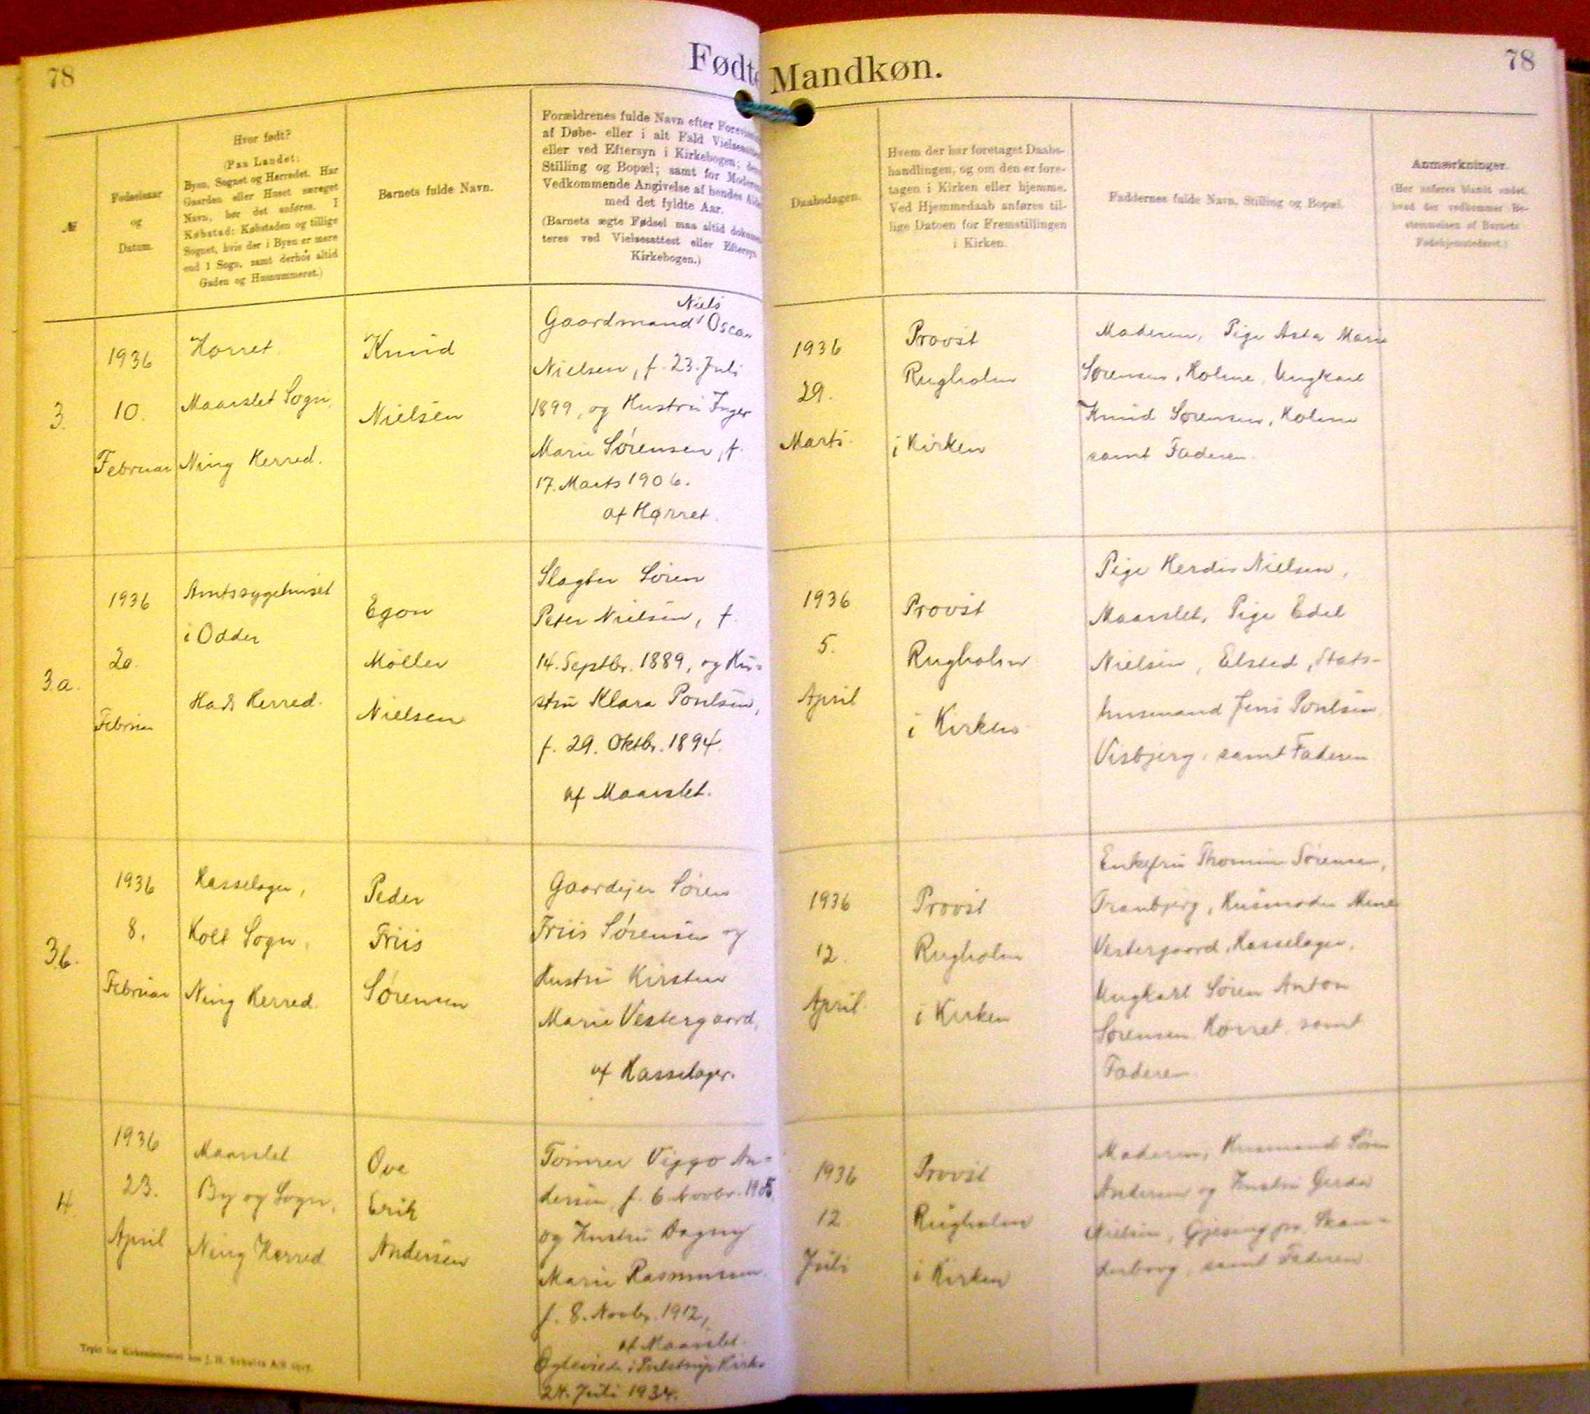 78
Fødte
Mandkøn.
78
№
Fødselsaar
og
Datum.
Hvor født?
(Paa Landet:
Byen, Sognet og Herredet. Har
Gaarden eller Huset særeget
Navn, bør det anføres. I
Købstad: Købstaden og tillige
Sognet, hvis der i Byen er mere
end 1 Sogn, samt derhos altid
Gaden og Husnummeret.)
Barnets fulde Navn.
Forældrenes fulde Navn efter
af Døbe- eller i alt Fald
eller ved Eftersyn i Kirkebogen;
Stilling og Bopæl; samt for
Vedkommende Angivelse af hendes
med det fyldte Aar.
(Barnets ægte Fødsel maa altid
teres ved Vielsesattest eller Eftersyn
Kirkebogen.)
Daabsdagen.
Hvem der har foretaget Daabs-
handlingen, og om den er fore-
tagen i Kirken eller hjemme.
Ved Hjemmedaab anføres til-
lige Datoen for Fremstillingen
i Kirken.
Faddernes fulde Navn, Stilling og Bopæl.
Anmærkninger.
(Her anføres blandt andet,
hvad der vedkommer Be-
stemmelsen af Barnets
Fødehjemstedsret.)
3.
1936
10.
Februar
Hørret
Maarslet Sogn,
Ning Herred.
Knud
Nielsen
Niels
Gaardmand Oscar
Nielsen, f. 23. Juli
1899, og Hustru Inger
Marie Sørensen, f.
17. Marts 1906.
af Hørret.
1936
29.
Marts
Provst
Rugholm
i Kirken
Moderen, Pige Asta Marie
Sørensen, Holme, Ungkarl
Knud Sørensen, Holme
samt Faderen.
3.a.
1936
20.
Februar
Amtssygehuset
i Odder
Hads Herred.
Egon
Møller
Nielsen
Slagter Søren
Peter Nielsen, f.
14. Septbr. 1889, og Hu-
stru Klara Poulsen,
f. 29. Oktbr. 1894.
af Maarslet.
1936
5.
April
Provst
Rugholm
i Kirken
Pige Herdis Nielsen,
Maarslet, Pige Edel
Nielsen, Elsted, Stats-
husmand Jens Poulsen,
Visbjerg, samt Faderen
3.b.
1936
8.
Februar
Hasselager,
Kolt Sogn,
Ning Herred.
Peder
Friis
Sørensen
Gaardejer Søren
Friis Sørensen og
Hustru Kirsten
Marie Vestergaard,
af Hasselager.
1936
12.
April
Provst
Rugholm
i Kirken
Enkefru Thomine Sørensen,
Tranbjerg, Husmoder
Vestergaard, Hasselager,
Ungkarl Søren Anton
Sørensen, Hørret, samt
Faderen
4.
1936
23.
April
Maarslet
By og Sogn,
Ning Herred
Ove
Erik
Andersen
Tømrer Viggo An-
dersen, f. 6. Novbr. 1905,
og Hustru Dagny
Marie Rasmussen
f. 8. Novbr. 1912,
af Maarslet.
i Kirke
24. Juli 1934.
1936
12.
Juli
Provst
Rugholm
i Kirken
Moderen, Husmand Søren
Andersen og Hustru Gerda
Nielsen, Gjesing pr. Skan-
derborg, samt Faderen
Trykt for Kirkeministeriet hos J. H. Schultz A/S